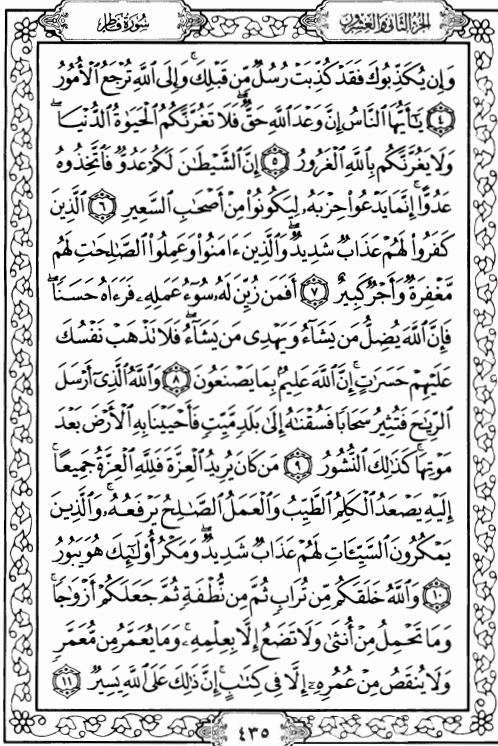 سُورَةُ فَاطِرٍ
الجزء الثاني والعشرون
وَإِن يُكَذِّبُوكَ فَقَدْ كُذِّبَتْ رُسُلٌ مِّن قَبْلِكَ ۚ وَإِلَى ٱللَّهِ تُرْجَعُ ٱلْأُمُورُ
﴿٤﴾ يَٰٓأَيُّهَا ٱلنَّاسُ إِنَّ وَعْدَ ٱللَّهِ حَقٌّ ۖ فَلَا تَغُرَّنَّكُمُ ٱلْحَيَوٰةُ ٱلدُّنْيَا ۖ
وَلَا يَغُرَّنَّكُم بِٱللَّهِ ٱلْغَرُورُ ﴿٥﴾ إِنَّ ٱلشَّيْطَٰنَ لَكُمْ عَدُوٌّ فَٱتَّخِذُوهُ
عَدُوًّا ۚ إِنَّمَا يَدْعُوا۟ حِزْبَهُۥ لِيَكُونُوا۟ مِنْ أَصْحَٰبِ ٱلسَّعِيرِ ﴿٦﴾ ٱلَّذِينَ
كَفَرُوا۟ لَهُمْ عَذَابٌ شَدِيدٌ ۖ وَٱلَّذِينَ ءَامَنُوا۟ وَعَمِلُوا۟ ٱلصَّٰلِحَٰتِ لَهُم
مَّغْفِرَةٌ وَأَجْرٌ كَبِيرٌ ﴿٧﴾ أَفَمَن زُيِّنَ لَهُۥ سُوٓءُ عَمَلِهِۦ فَرَءَاهُ حَسَنًا ۖ
فَإِنَّ ٱللَّهَ يُضِلُّ مَن يَشَآءُ وَيَهْدِى مَن يَشَآءُ ۖ فَلَا تَذْهَبْ نَفْسُكَ
عَلَيْهِمْ حَسَرَٰتٍ ۚ إِنَّ ٱللَّهَ عَلِيمٌۢ بِمَا يَصْنَعُونَ ﴿٨﴾ وَٱللَّهُ ٱلَّذِىٓ أَرْسَلَ
ٱلرِّيَٰحَ فَتُثِيرُ سَحَابًا فَسُقْنَٰهُ إِلَىٰ بَلَدٍ مَّيِّتٍ فَأَحْيَيْنَا بِهِ ٱلْأَرْضَ بَعْدَ
مَوْتِهَا ۚ كَذَٰلِكَ ٱلنُّشُورُ ﴿٩﴾ مَن كَانَ يُرِيدُ ٱلْعِزَّةَ فَلِلَّهِ ٱلْعِزَّةُ جَمِيعًا ۚ
إِلَيْهِ يَصْعَدُ ٱلْكَلِمُ ٱلطَّيِّبُ وَٱلْعَمَلُ ٱلصَّٰلِحُ يَرْفَعُهُۥ ۚ وَٱلَّذِينَ
يَمْكُرُونَ ٱلسَّيِّـَٔاتِ لَهُمْ عَذَابٌ شَدِيدٌ ۖ وَمَكْرُ أُو۟لَٰٓئِكَ هُوَ يَبُورُ
﴿١٠﴾ وَٱللَّهُ خَلَقَكُم مِّن تُرَابٍ ثُمَّ مِن نُّطْفَةٍ ثُمَّ جَعَلَكُمْ أَزْوَٰجًا ۚ
وَمَا تَحْمِلُ مِنْ أُنثَىٰ وَلَا تَضَعُ إِلَّا بِعِلْمِهِۦ ۚ وَمَا يُعَمَّرُ مِن مُّعَمَّرٍ
وَلَا يُنقَصُ مِنْ عُمُرِهِۦٓ إِلَّا فِى كِتَٰبٍ ۚ إِنَّ ذَٰلِكَ عَلَى ٱللَّهِ يَسِيرٌ ﴿١١﴾
٤٣٥